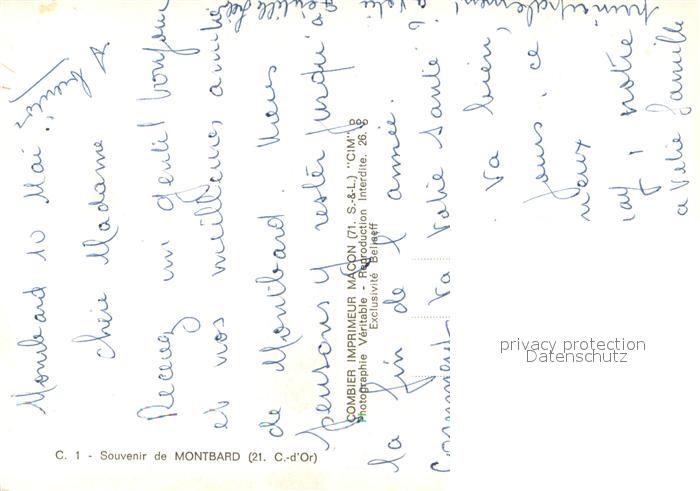 Montbard 10 Mai.
Chère Madame
Recevez un gentil bonjour
et nos meilleures amitiés
de Montbard. Nous
pensons y rester jusqu'à
la fin de l'année.
Comment va votre santé
va bien,
jours. ce
vieux
notre
a votre famille
principalement
a votre
C. 1 - Souvenir de MONTBARD (21. C.-d'Or)
COMBIER IMPRIMEUR MACON (71. S.-&-L.) "CIM"
Photographie Véritable - Reproduction Interdite.
Exclusivité
privacy protection
Datenschutz